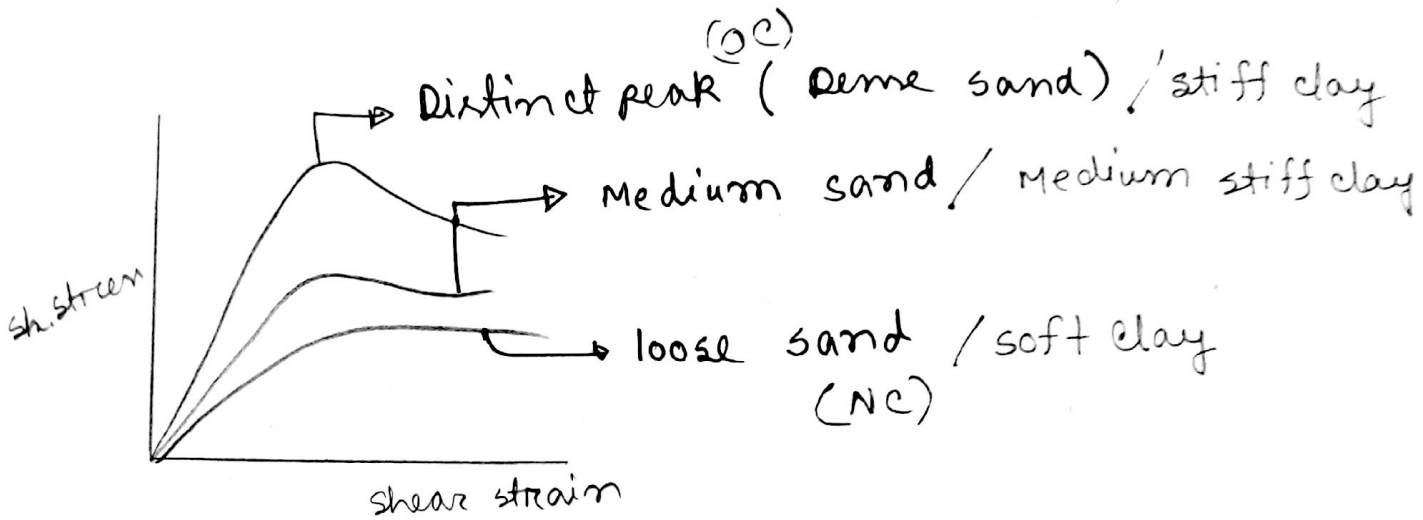 (OC)
Distinct peak (Dense sand) / stiff clay
Medium sand / Medium stiff clay
sh. stress
loose sand / soft clay
(NC)
shear strain